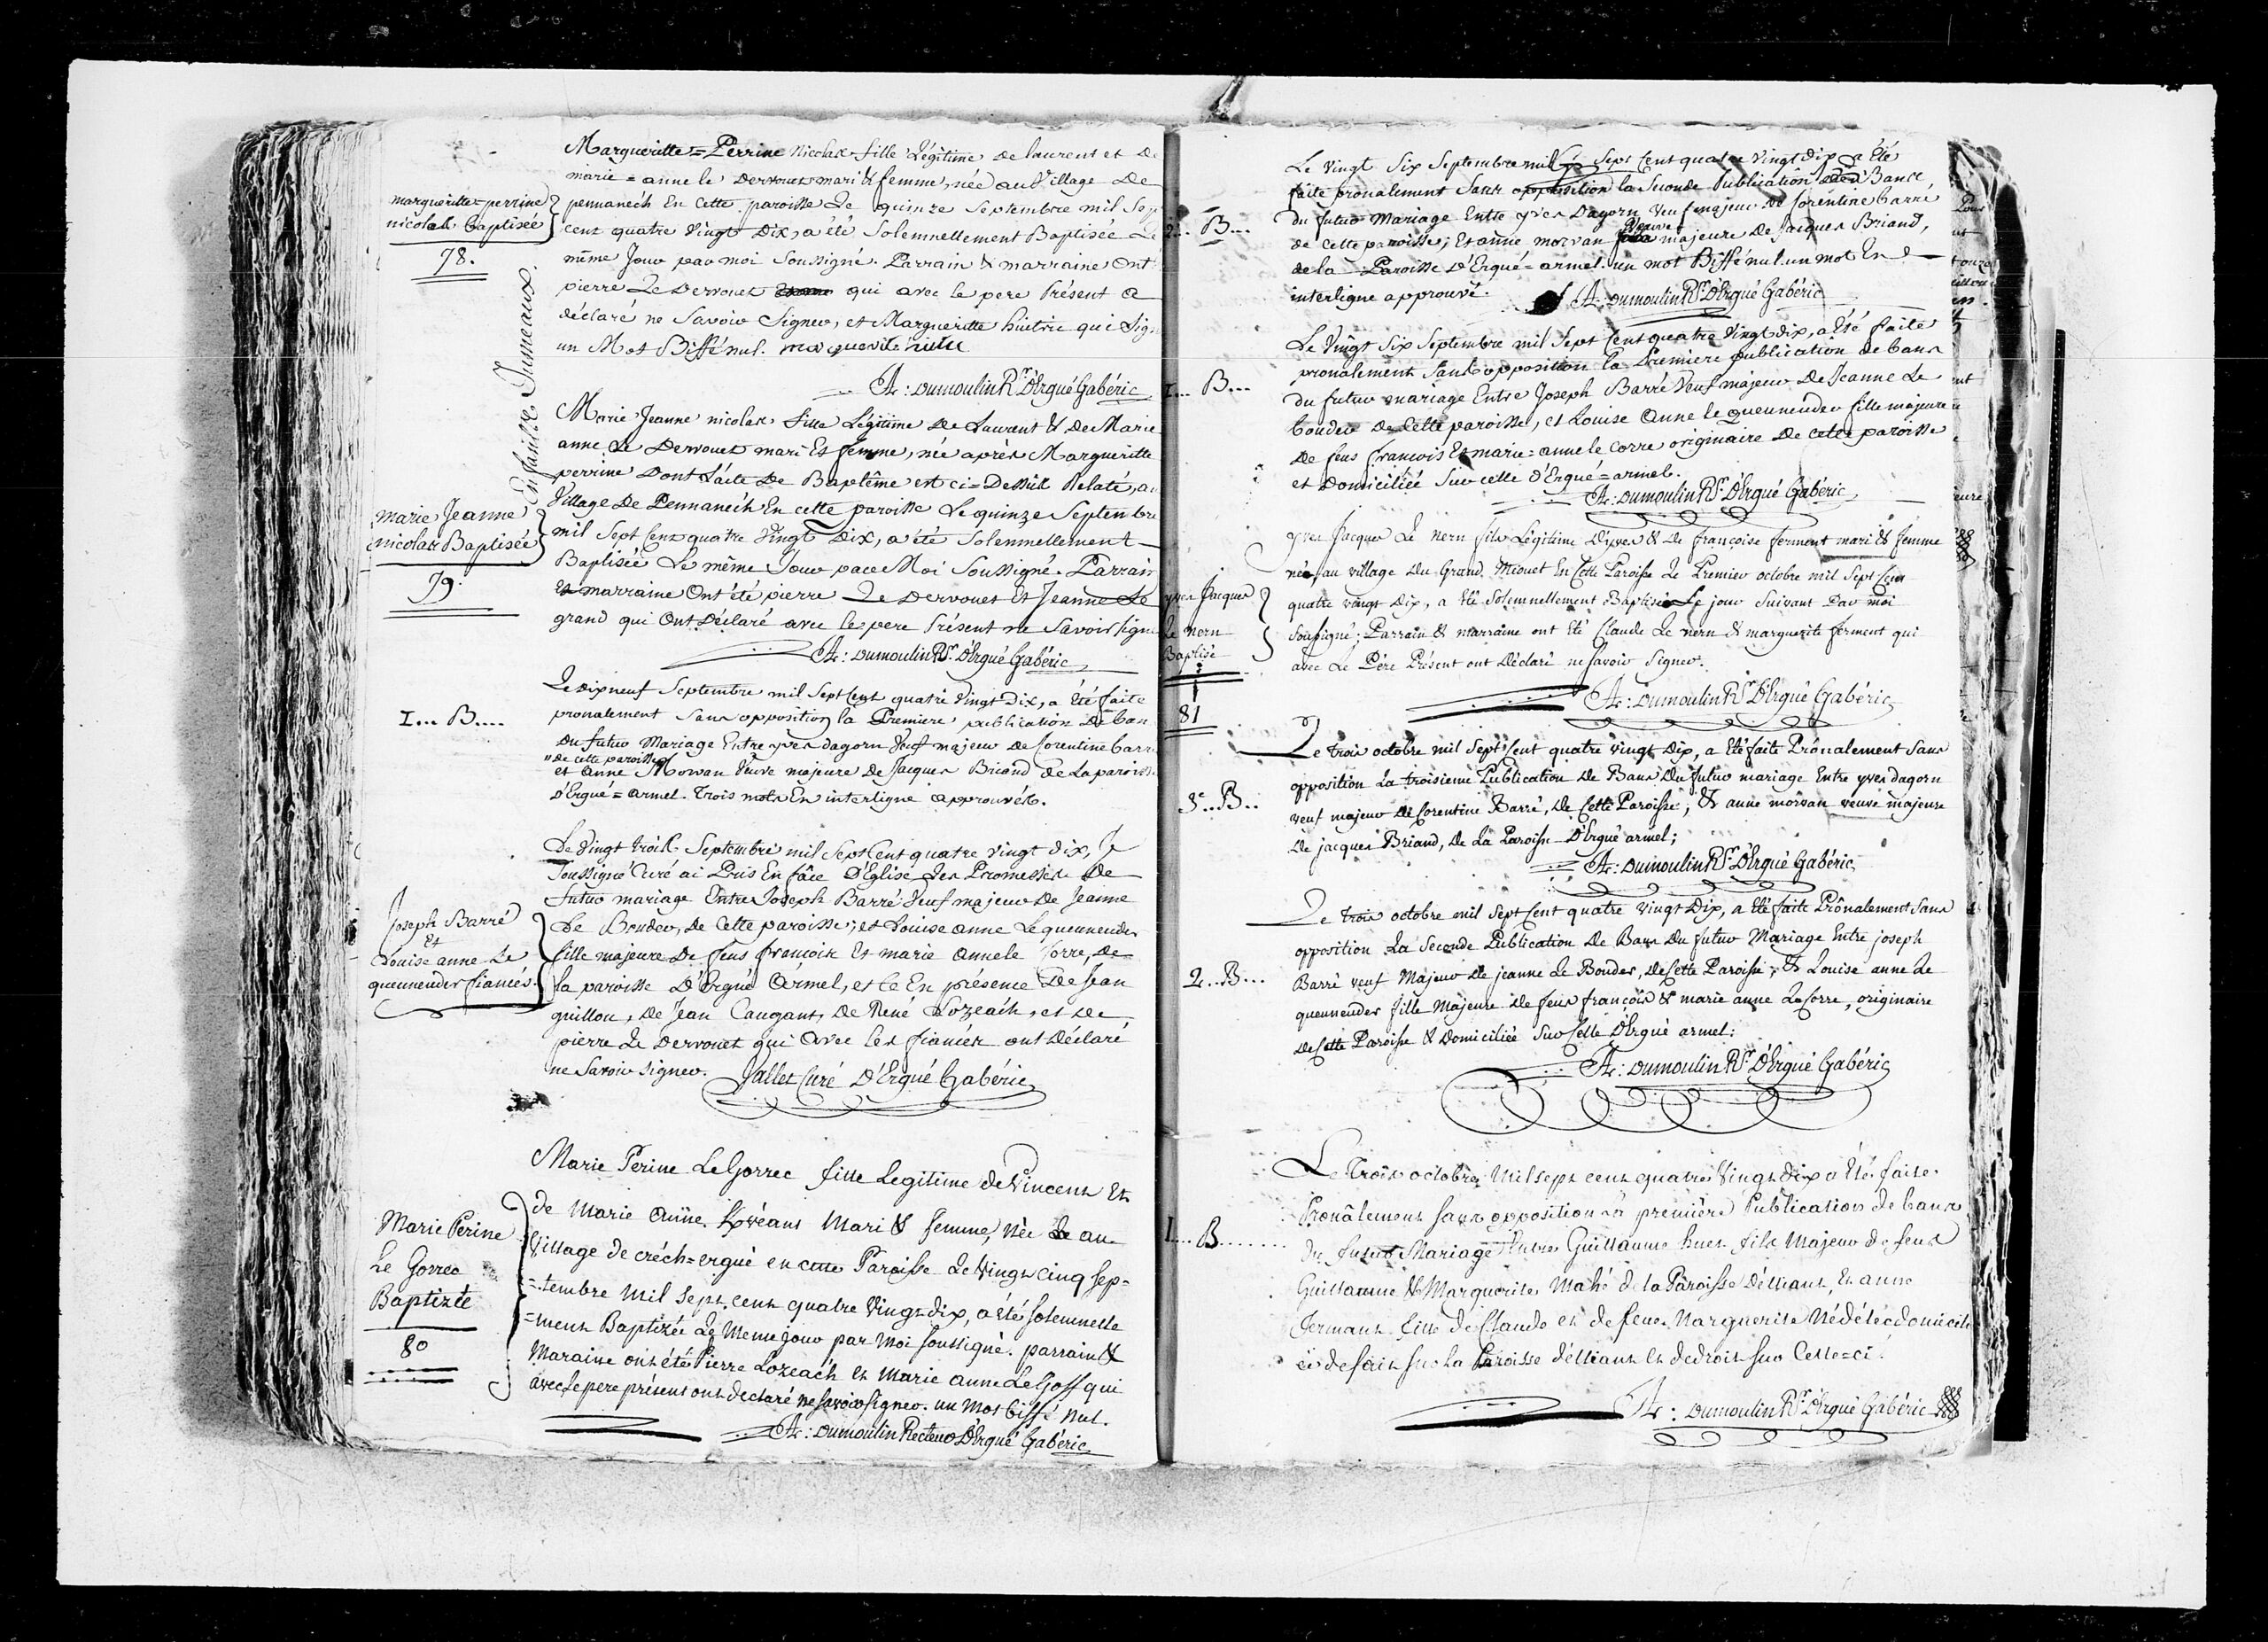 Marguerite=Perrine Nicolas fille Légitime de laurent et De
marie=anne le Dervouet mari & femme, née au Village De
margueritte=perrine
nicolas baptisée
78.
pennanech En Cette paroisse Le quinze Septembre mil Sep
cent quatre Vingt Dix, a été Solemnellement Baptisée Le
même Jour par moi Soussigné. Parrain & marraine Ont
pierre Le Dervouet qui avec le pere Présent a
déclaré ne Savoir Signer, et Margueritte huitric qui Sign
un Mot Biffé nul.
Enfants Jumeaux.
A: Dumoulin Rr. D'Ergué Gabéric
Marie Jeanne nicolas fille Légitime De Laurent & De Marie
anne Le Dervouet mari Et femme, née après Margueritte
perrine Dont L'acte De Baptême est ci=Dessus Relaté, au
Village De Pennanech En cette paroisse Le quinze Septembre
marie Jeanne
nicolas Baptisée
79.
mil Sept Cent quatre Vingt Dix, a été Solennellement
Baptisée Le même Jour par Moi Soussigné. Parrain
et marraine Ont été pierre Le Dervouet et Jeanne Le
grand qui Ont Déclaré avec le pere Présent ne Savoir Signe
A: Dumoulin Rr. D'Ergué Gabéric
Le dix neuf Septembre mil Sept Cent quatre Vingt Dix, a Eté faite
1... B....
pronalement Sans opposition la Premiere publication De ban
Du futur Mariage Entre yves dagorn Veuf majeur De Corentine barr
"de cette paroisse
et Anne Morvan Veuve majeure De Jacques Briand De La paroisse
D'Ergué=armel. Trois mots En interligne approuvés.
Le Vingt trois Septembre mil Sept Cent quatre Vingt Dix, Je
Soussigné Curé ai Pris En face D'Eglise Les Promesses De
futur mariage Entre Joseph Barré Veuf majeur De Jeanne
Joseph Barré
Et
Louise anne Le
queunender fiancés.
Le Bouder, De Cette paroisse, et Louise anne Le queunender
fille majeure De feus françois Et marie Anne le Corre, De
la paroisse D'Ergué Armel, et ce En présence De Jean
guillou, De Jean Caugant, De René Lozeach, et De
pierre Le Dervouet qui avec les fiancés ont Déclaré
ne Savoir Signer. Jallet Curé D'Ergué Gabéric
Marie Perine Le Gorrec fille Legitime de Vincent Et
de Marie Anne mari & femme, Née au
Marie Perine
Le Gorrec
Baptizée
80
Village de créch=ergué en cette Paroisse Le Vingt cinq Sep=
=tembre Mil Sept cent quatre Vingt dix, a été Solemnelle
=ment Baptizée Le Meme jour par Moi soussigné. parrain &
Maraine ont été Pierre Lozeach et Marie anne Le Goff qui
avec le pere présent ont déclaré ne savoir signer. un Mot biffé Nul.
A: Dumoulin Recteur D'Ergué Gabéric
Le Vingt Six Septembre mil Sept Cent quatre Vingt Dix a Eté
faite pronalement Sans opposition la Seconde Publication Bans
2... B....
du futur Mariage Entre yves Dagorn Veuf majeur De Corentine barré
Veuve
de Cette paroisse, Et anne morvan majeure De Jacques Briand,
de la Paroisse D'Ergué=armel. un mot Biffé nul. un mot En
interligne approuvé. A: Dumoulin Rr. D'Ergué Gabéric
Le Vingt Six Septembre mil Sept Cent quatre Vingt dix, a Eté faite
pronalement Sans opposition la Premiere publication de bans
1... B...
Du futur mariage Entre Joseph Barré Veuf majeur De Jeanne Le
bouder De Cette paroisse, et Louise Anne le queunender fille majeure
De feus francois Et marie=anne le Corre originaire De cette paroisse
et Domiciliée Sur celle d'Ergué=armel.
A: Dumoulin Rr. D'Ergué Gabéric
yves Jacques Le nern fils Légitime D'yves & De françoise ferment mari & femme
né, au village Du Grand En Cette Paroisse Le Premier octobre mil Sept Cent
yves Jacques
Le nern
Baptisé
81
quatre vingt Dix, a Eté Solemnellement Baptisé Le jour Suivant Par moi
Soussigné; Parrain & marraine ont Eté Claude Le nern & marguerite ferment qui
avec Le Père Présent ont Déclaré ne Savoir Signer.
A: Dumoulin Rr. D'Ergué Gabéric
Le trois octobre mil Sept Cent quatre vingt Dix, a Eté faite Prônalement Sans
opposition La troisieme Publication De Bans Du futur mariage Entre yves dagorn
3e.. B..
veuf majeur De Corentine Barré, De Cette Paroisse, & anne morvan veuve majeure
De jacques Briand, De La Paroisse D'Ergué armel;
A: Dumoulin Rr. D'Ergué Gabéric
Le trois octobre mil Sept Cent quatre vingt Dix, a Eté faite Prônalement Sans
opposition La Seconde Publication De Bans Du futur Mariage Entre joseph
2.. B...
Barré veuf Majeur De jeanne Le Bouder, De Cette Paroisse, & Louise anne Le
queunender fille Majeure De feus françois & marie anne Le Corre, originaire
De Cette Paroisse & Domiciliée Sur Celle D'Ergué armel:
A: Dumoulin Rr. D'Ergué Gabéric
Le Trois octobre Mil sept cent quatre Vingt dix a Eté faite
Prônalement sans opposition La première Publication de bans
1... B.......
du futur Mariage Entre Guillaume huet fils Majeur de feus
Guillaume & Marguerite Mahé de la Paroisse D'elliant, Et anne
Jermant fille de Claude et de feue Marguerite Nédélec domicili
ée de fait sur la Paroisse d'elliant et de droit sur Celle=ci.
A: Dumoulin Rr. D'Ergué Gabéric